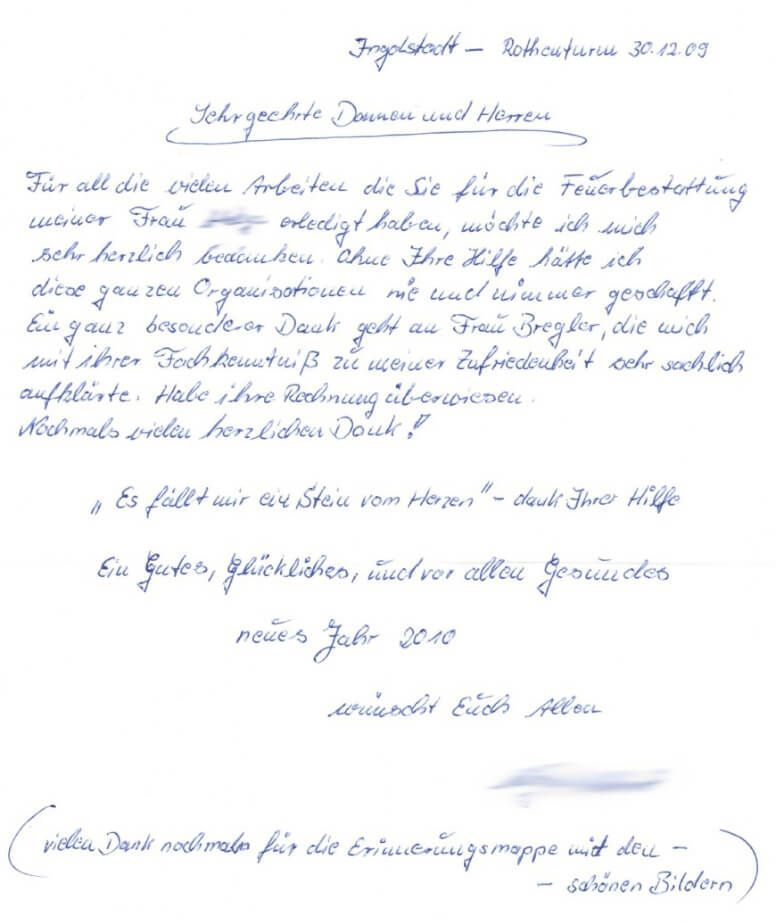 Ingolstadt – Rothenturm 30.12.09
Sehr geehrte Damen und Herren
Für all die vielen Arbeiten die Sie für die Feuerbestattung
meiner Frau erledigt haben, möchte ich mich
sehr herzlich bedanken. Ohne Ihre Hilfe hätte ich
diese ganzen Organisationen nie und nimmer geschafft.
Ein ganz besonderer Dank geht an Frau Bregler, die mich
mit ihrer Fachkenntniß zu meiner Zufriedenheit sehr sachlich
aufklärte. Habe ihre Rechnung überwiesen.
Nochmals vielen herzlichen Dank!
„Es fällt mir ein Stein vom Herzen" – dank Ihrer Hilfe
Ein Gutes, Glückliches, und vor allen Gesundes
neues Jahr 2010
wünscht Euch Allen
(vielen Dank nochmals für die Erinnerungsmappe mit den –
– schönen Bildern)